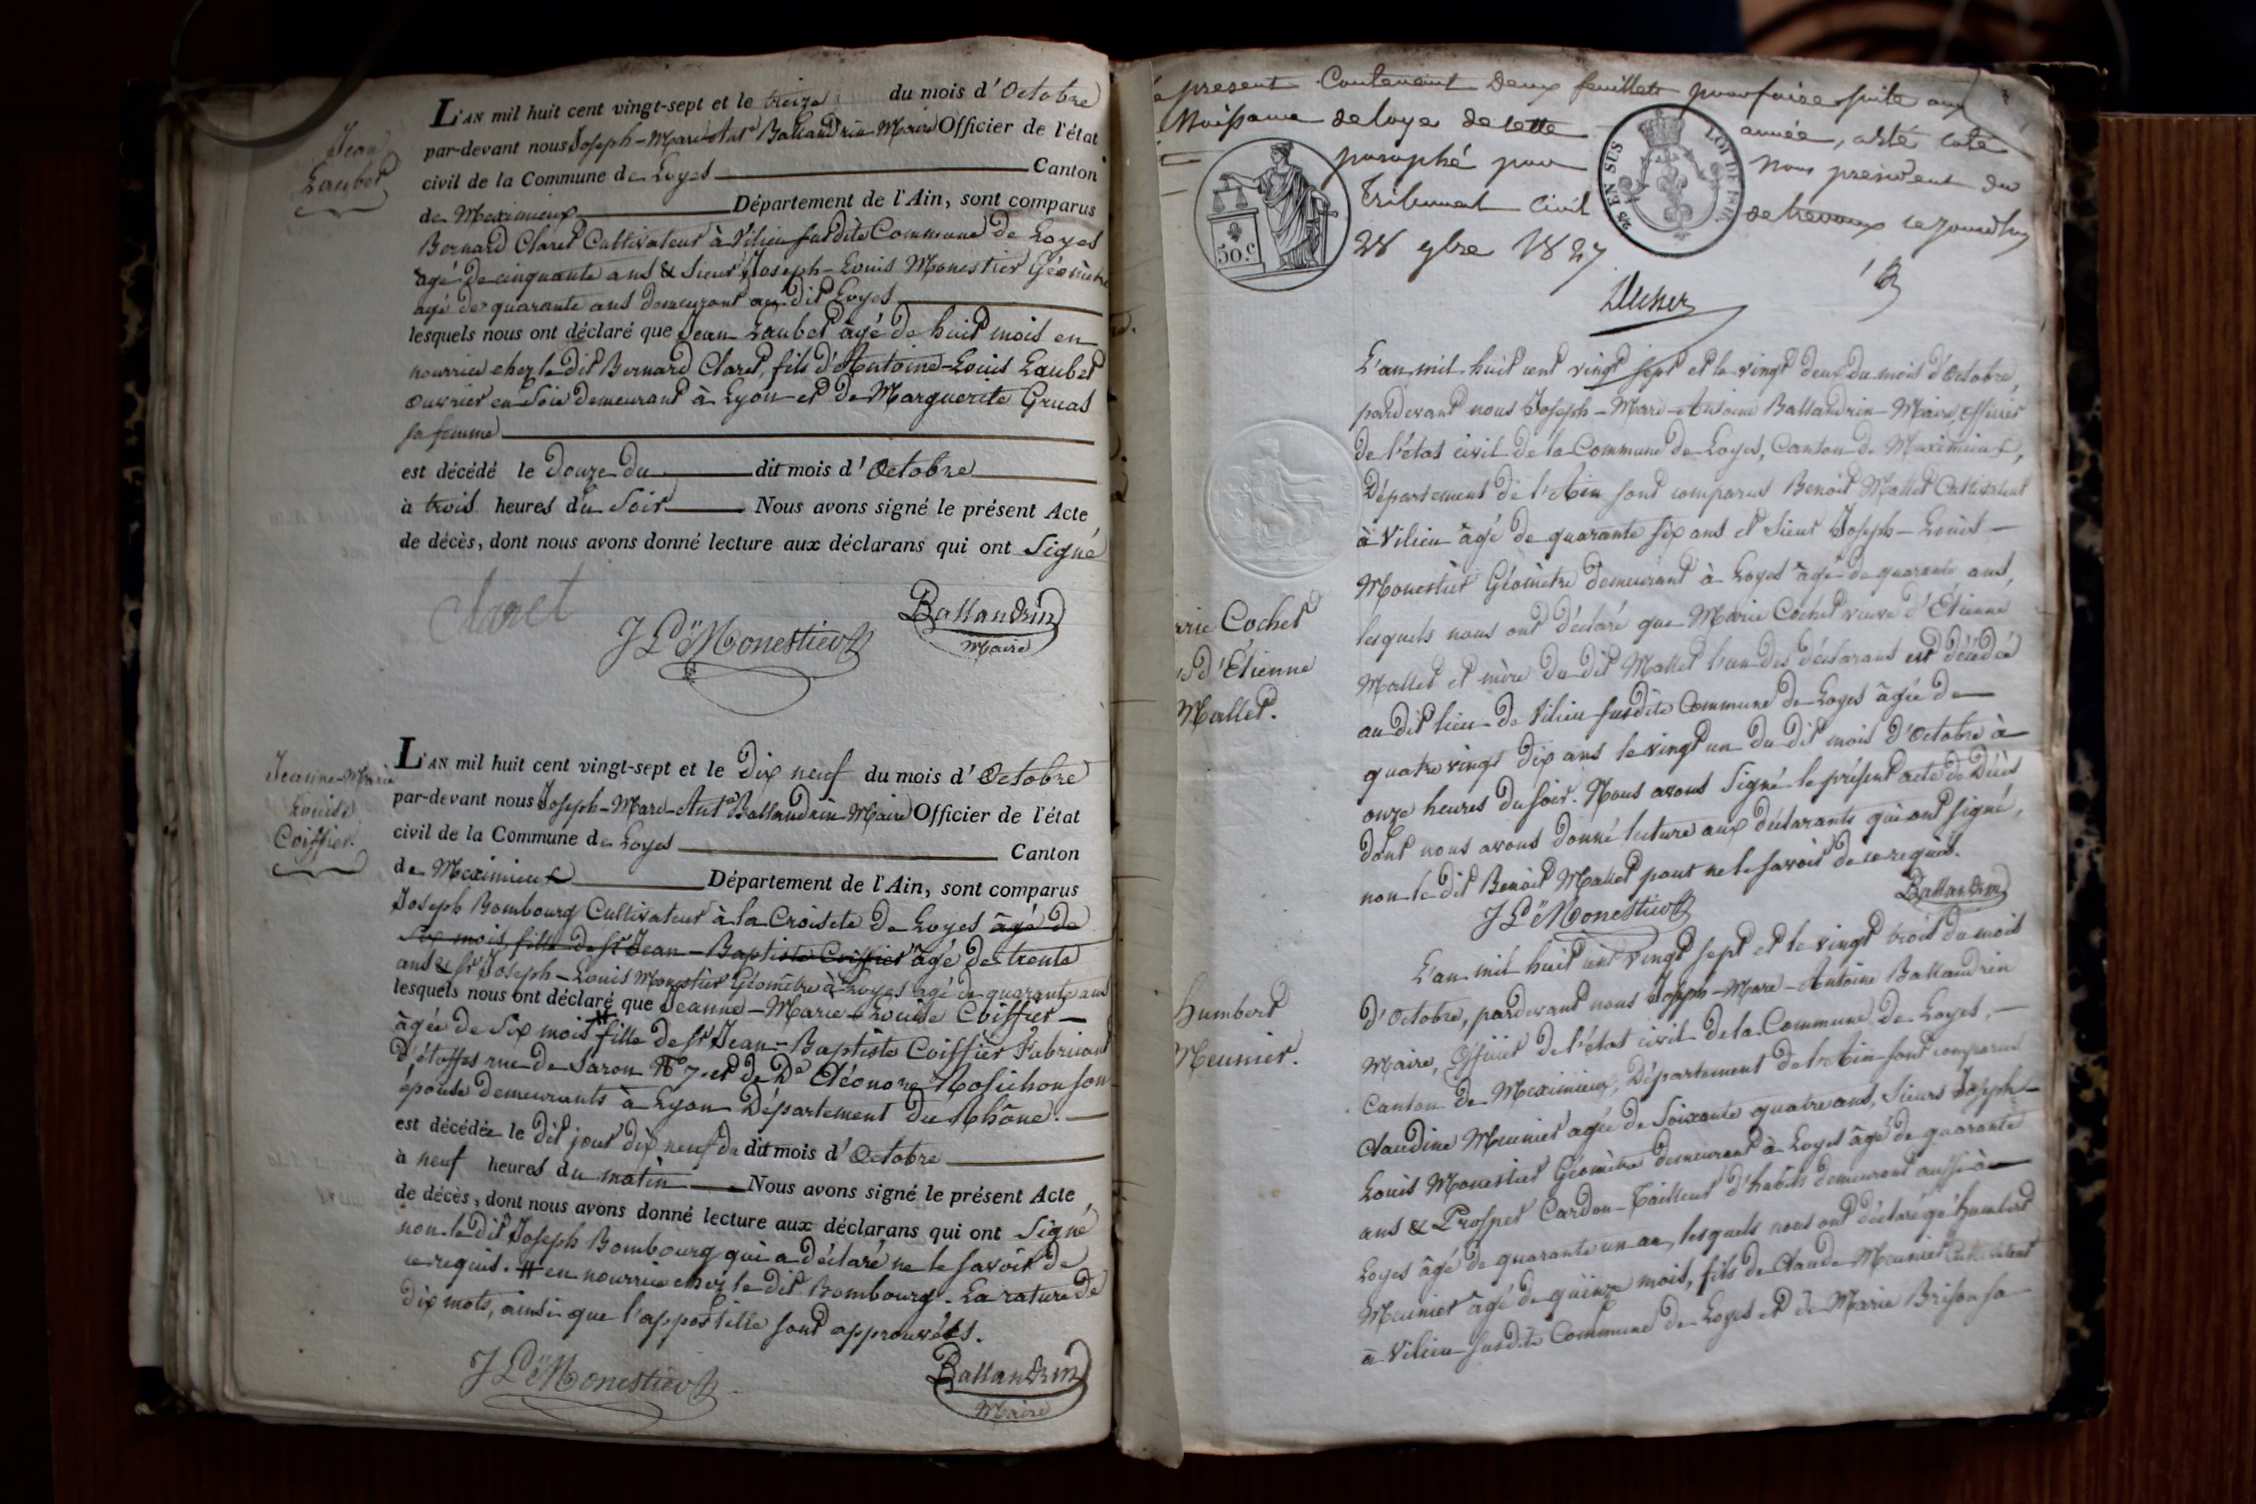 Jean
Laubet
L'AN mil huit cent vingt-sept et le treize du mois d'Octobre
par-devant nous Joseph-Marc-Ant.e Ballandrin Maire Officier de l'état
civil de la Commune de Loyes Canton
de Meximieux Département de l'Ain, sont comparus
Bernard Claret Cultivateur à Vilieu susdite Commune de Loyes
agé de cinquante ans & Sieur Joseph-Louis Monestier Géomètre
agé de quarante ans demeurant au dit Loyes
lesquels nous ont déclaré que Jean Laubet âgé de huit mois en
nourrice chez le dit Bernard Claret, fils d'Antoine-Louis Laubet
ouvrier en Soie demeurant à Lyon et de Marguerite Gruas
sa femme
est décédé le Douze du dit mois d'Octobre
à trois heures du Soir Nous avons signé le présent Acte
de décès, dont nous avons donné lecture aux déclarans qui ont Signé
Claret
J Ls Monestier
Ballandrin
Maire
Jeanne-Marie
Louise
Coiffier.
L'AN mil huit cent vingt-sept et le Dix neuf du mois d'Octobre
par-devant nous Joseph-Marc-Ant.e Ballandrin Maire Officier de l'état
civil de la Commune de Loyes Canton
de Meximieux Département de l'Ain, sont comparus
Joseph Bombourg Cultivateur à la Croisete de Loyes âgé de
six mois fille de Sr Jean-Baptiste Coiffier âgé de trente
ans & Sr Joseph-Louis Monestier Géomètre à Loyes agé de quarante ans
lesquels nous ont déclaré que Jeanne-Marie-Louise Coiffier
âgée de Six mois # fille de Sr Jean-Baptiste Coiffier Fabricant
D'étoffes rue de Saron No 7. et de De Eléonore Rosichon son
épouse demeurants à Lyon Département du Rhône.
est décédée le dit jour dix neuf du dit mois d'Octobre
à neuf heures du matin Nous avons signé le présent Acte
de décès, dont nous avons donné lecture aux déclarans qui ont Signé
non le dit Joseph Bombourg qui a déclaré ne le savoir de
ce requis. # en nourrice chez le dit Bombourg. La rature de
dix mots, ainsi que l'appostille sont approuvées.
J Ls Monestier
Ballandrin
Maire
présent Contenant Deux feuillets pour faire suite aux
de Loye de cette année, a été coté
paraphé par nous président du
Tribunal Civil de trevoux ce jourd'huy
28 9bre 1827
50 c
EN SUS
LOI DE 1816
L'an mil huit cent vingt sept et le vingt deux du mois d'Octobre,
pardevant nous Joseph-Marc-Antoine Ballandrin-Maire, officier
de l'état civil de la Commune de Loyes, Canton de Meximieux,
Département de l'Ain sont comparus Benoit Mallet Cultivateur
à Vilieu âgé de quarante six ans et Sieur Joseph-Louis
Monestier Géomètre demeurant à Loyes âgé de quarante ans,
lesquels nous ont déclaré que Marie Cochet veuve d'Etienne
Mallet et mère du dit Mallet l'un des déclarans est décédée
au dit lieu de Vilieu susdite Commune de Loyes âgée de
quatre vingt dix ans le vingt un du dit mois d'Octobre à
onze heures du soir. Nous avons Signé le présent acte de Décès
dont nous avons donné lecture aux déclarants qui ont signé,
non le dit Benoit Mallet pour ne le savoir de ce requis.
rie Cochet
d'Etienne
Mallet.
J Ls Monestier
Ballandrin
L'an mil huit cent vingt sept et le vingt trois du mois
D'Octobre, pardevant nous Joseph-Marc-Antoine Ballandrin
Maire, Officier de l'état civil de la Commune de Loyes,
Canton de Meximieux, Département de l'Ain sont comparus
Claudine Meunier agée de Soixante quatre ans, Sieurs Joseph-
Louis Monestier Géomètre demeurant à Loyes âgé de quarante
ans & Prosper Cardon-Tailleur d'habits demeurant aussi à
Loyes âgé de quarante un an, lesquels nous ont déclaré qe Humbert
Meunier âgé de quinze mois, fils de Claude Meunier Cultivateur
à Vilieu susdite Commune de Loyes et de Marie Brison sa
Humbert
Meunier.